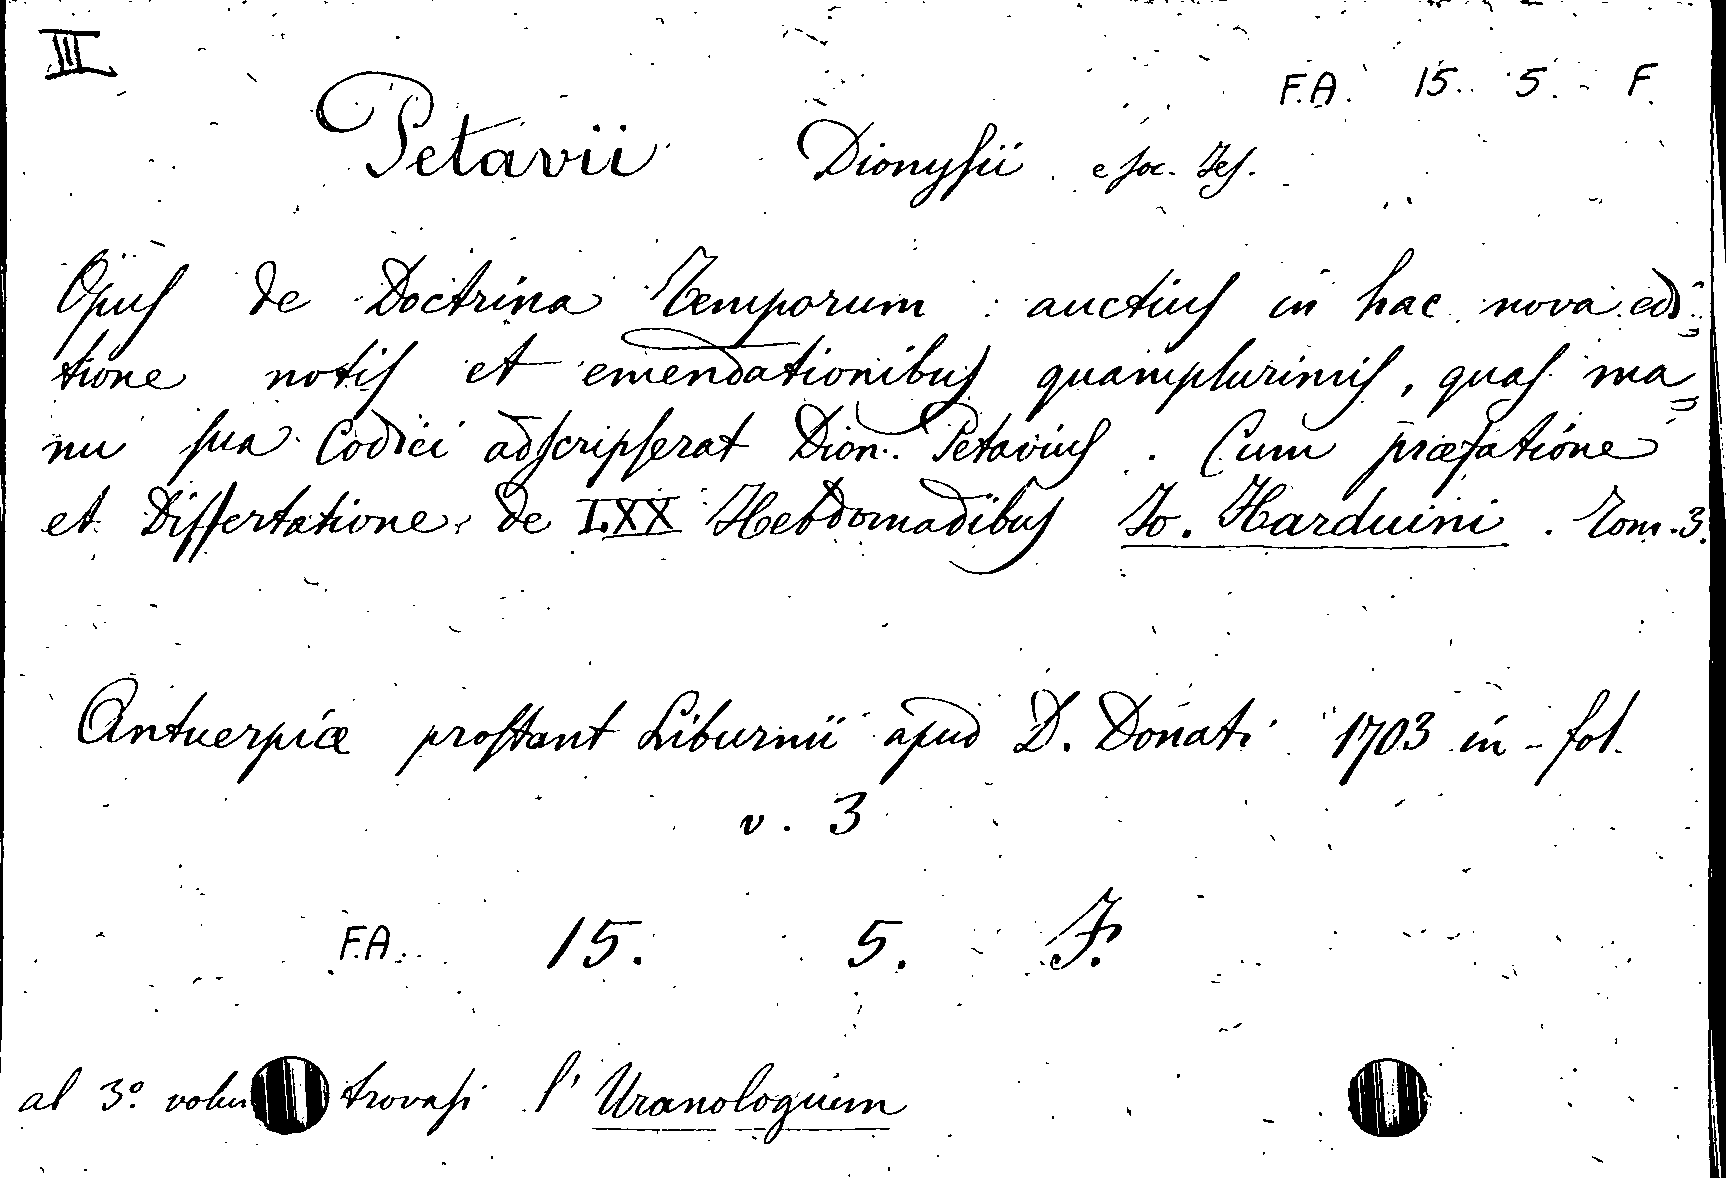 III
F.A. 15. 5. F.
Petavii Dionysii e soc. Jes.
Opus de Doctrina Temporum : auctius in hac nova edi=
tione notis et emendationibus quamplurimis, quas ma=
nu sua Codici adscripserat Dion. Petavius. Cum præfatione
et Dissertatione, de LXX Hebdomadibus Jo. Harduini. Tom. 3.
Antuerpiæ prostant Liburnii apud D. Donati 1703 in-fol.
v. 3
F.A. 15. 5. F.
al 3º volu trovasi l' Uranologuem